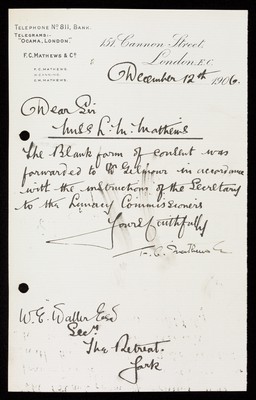 TELEPHONE Nº 811, BANK.
TELEGRAMS:-
"OCAMA, LONDON"
F.C. MATHEWS & Cº
151, Cannon Street,
London, E.C.
December 12th 1906.
Dear Sir
L. M. Mathews
The Blank form of consent was
forwarded to Dr Gilmour in accordance
with the instructions of the Secretary
to the Lunacy Commissioners
Yours faithfully
F. C. Mathews
W. E. Waller Esq
Secy.
The Retreat.
York